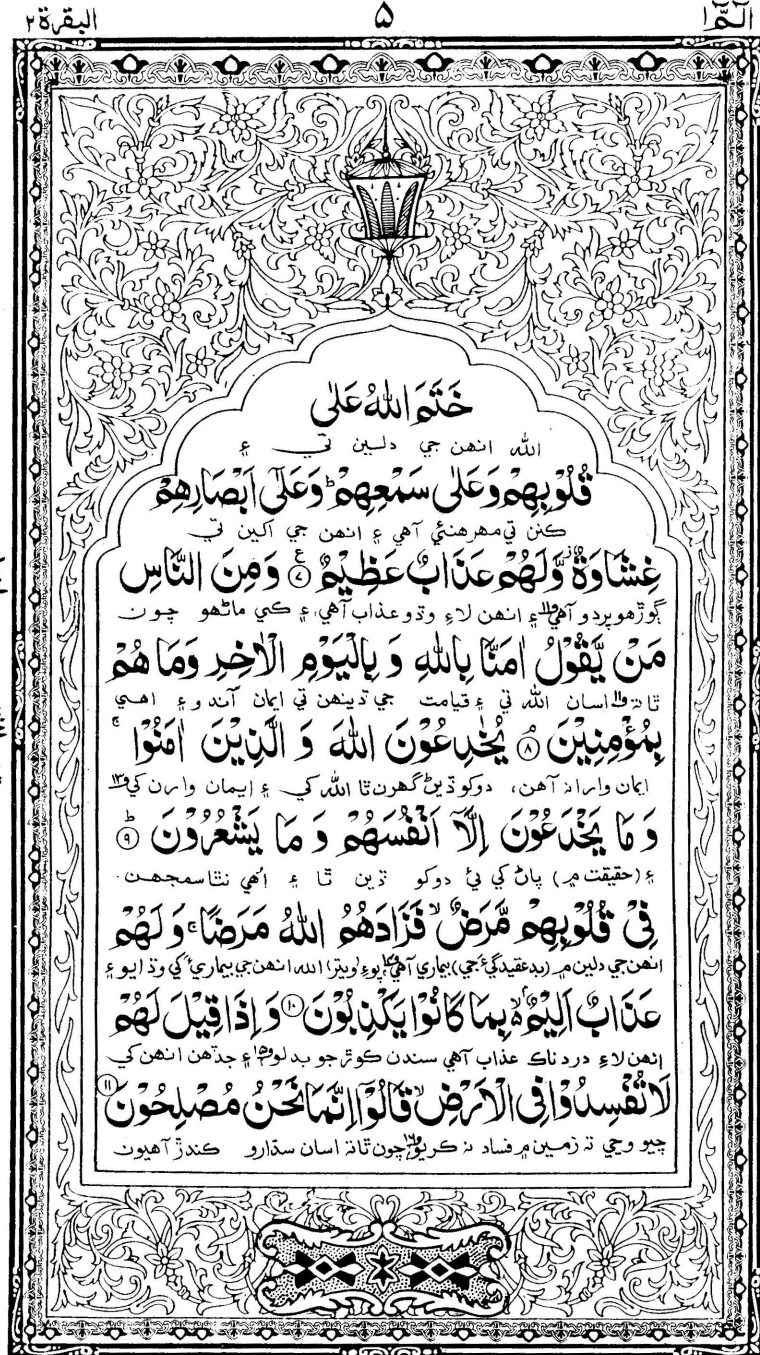 الٓمّٓ ۱ ۵ البقرة ۲
خَتَمَ اللهُ عَلٰی
الله انهن جي دلين تي ۽
قُلُوْبِهِمْ وَعَلٰی سَمْعِهِمْ ؕ وَعَلٰۤی اَبْصَارِهِمْ
ڪنن تي مهر هنئي آهي ۽ انهن جي اکين تي
غِشَاوَةٌ ؗ وَّلَهُمْ عَذَابٌ عَظِيْمٌ ﴿۷﴾ ع وَمِنَ النَّاسِ
ڳوڙهو پردو آهي ۽ انهن لاءِ وڏو عذاب آهي، ۽ ڪي ماڻهو چون
مَنْ يَّقُوْلُ اٰمَنَّا بِاللهِ وَ بِالْيَوْمِ الْاٰخِرِ وَمَا هُمْ
ٿا تہ اسان الله تي ۽ قيامت جي ڏينهن تي ايمان آندو ۽ اهي
بِمُؤْمِنِيْنَ ۘ ﴿۸﴾ يُخٰدِعُوْنَ اللهَ وَ الَّذِيْنَ اٰمَنُوْا ۚ
ايمان وارا نہ آهن، دوکو ڏيڻ گهرن ٿا الله کي ۽ ايمان وارن کي
وَ مَا يَخْدَعُوْنَ اِلَّاۤ اَنْفُسَهُمْ وَ مَا يَشْعُرُوْنَ ؕ ﴿۹﴾
۽ (حقيقت ۾) پاڻ کي ئي دوکو ڏين ٿا ۽ اُهي نٿا سمجهن.
فِيْ قُلُوْبِهِمْ مَّرَضٌ ۙ فَزَادَهُمُ اللهُ مَرَضًا ۚ وَ لَهُمْ
انهن جي دلين ۾ (بد عقيدگيءَ جي) بيماري آهي پوءِ (ويتر) الله انهن جي بيماريءَ کي وڌايو ۽
عَذَابٌ اَلِيْمٌۢ ۬ۙ بِمَا كَانُوْا يَكْذِبُوْنَ ﴿۱۰﴾ وَ اِذَا قِيْلَ لَهُمْ
انهن لاءِ دردناڪ عذاب آهي سندن ڪوڙ جو بدلو ۽ جڏهن انهن کي
لَا تُفْسِدُوْا فِي الْاَرْضِ ۙ قَالُوْۤا اِنَّمَا نَحْنُ مُصْلِحُوْنَ ﴿۱۱﴾
چيو وڃي تہ زمين ۾ فساد نہ ڪريو چون ٿا تہ اسان سڌارو ڪندڙ آهيون